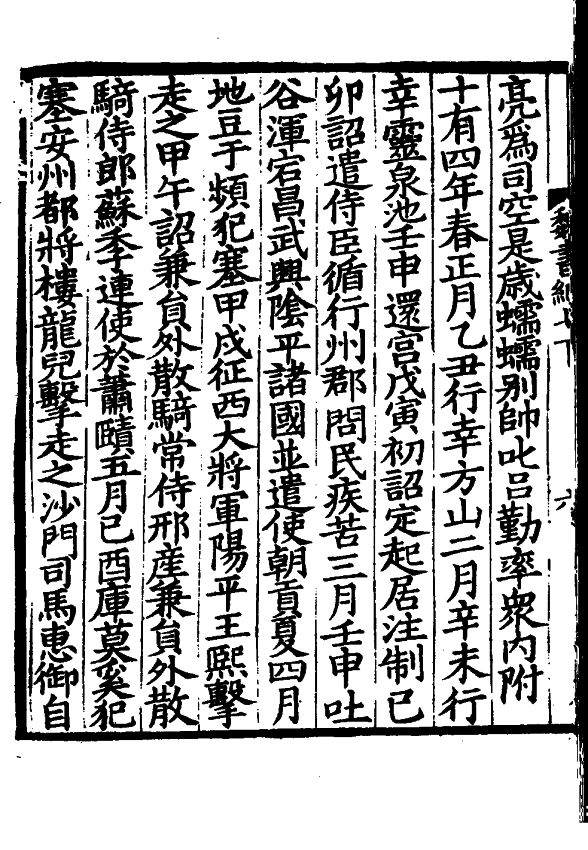 亮爲司空是歳蠕蠕别帥叱吕勤率衆内附
十有四年春正月乙丑行幸方山二月辛未行
幸靈泉池壬申還宫戊寅初詔定起居注制己
卯詔遣侍臣循行州郡問民疾苦三月壬申吐
谷渾宕昌武興陰平諸國並遣使朝貢夏四月
地豆于頻犯塞甲戌征西大將軍陽平王熙擊
走之甲午詔兼負外散騎常侍邢産兼負外散
騎侍郎蘇季連使於蕭賾五月己酉庫莫奚犯
塞安州都將樓龍兒擊走之沙門司馬惠御自